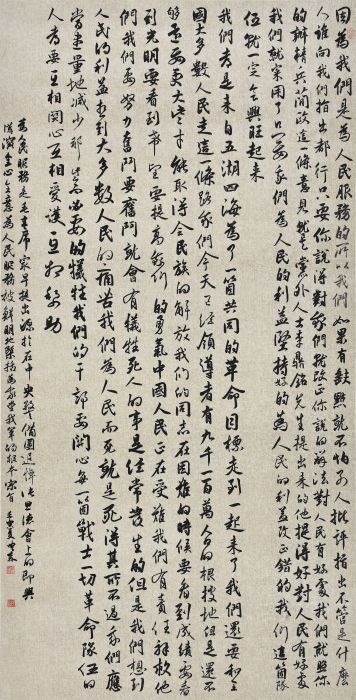 因為我們是為人民服務的所以我們如果有缺點就不怕別人批評指出不管是什麼
人誰向我們指出都行只要你說得對我們就改正你說的辦法對人民有好處我們就照你
的辦精兵簡政這一條意見就是黨外人士李鼎銘先生提出來的他提得好對人民有好處
我們就采用了只要我們為人民的利益堅持好的為人民的利益改正錯的我們這個隊
伍就一定會興旺起來
我們都是來自五湖四海為了一個共同的革命目標走到一起來了我們還要和全
國大多數人民走這一條路我們今天已經領導著有九千一百萬人口的根據地但是還不
夠還要更大些才能取得全民族的解放我們的同志在困難的時候要看到成績要看
到光明要看到希望要提高我們的勇氣中國人民正在受難我們有責任解救他
們我們要努力奮鬥要奮鬥就會有犧牲死人的事是經常發生的但是我們想到
人民的利益想到大多數人民的痛苦我們為人民而死就是死得其所不過我們應
當盡量地減少那些不必要的犧牲我們的干部要關心每一個戰士一切革命隊伍的
人都要互相關心互相愛護互相幫助
為人民服務是毛主席最早提出源於在中央警備團追悼張思德會上的即興
講演全心全意為人民服務被鮮明地概括為我黨我軍的根本宗旨